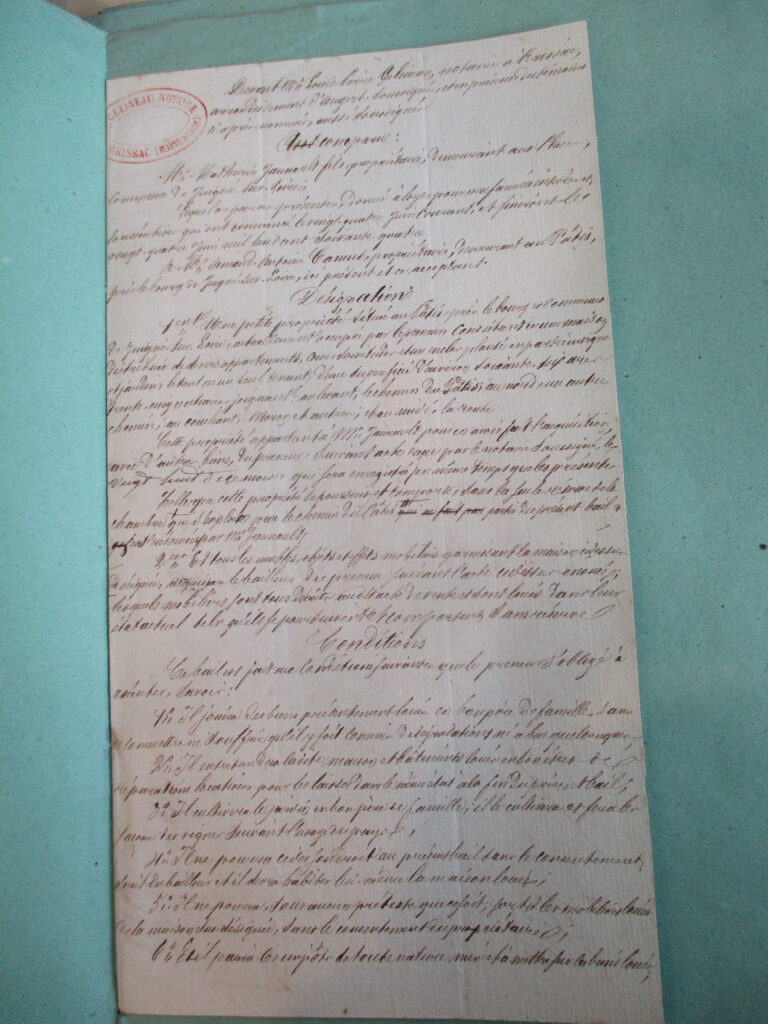 GELINEAU NOTAIRE
BRISSAC (MAINE-&-LOIRE)
Devant Me Louis Marie Gelineau, notaire à Brissac,
arrondissement d'Angers, soussigné, et en présence des témoins
ci après nommés, aussi soussignés
comparu :
Mr Mathurin Jannault fils, propriétaire, demeurant aux
commune de Juigné-sur-Loire,
Lequel a par ces présentes, donné à loyer pour neuf années entières,
consécutives qui ont commencé le vingt quatre Juin courant, et finiront le
vingt-quatre Juin mil huit cent soixante quatre
à Mr Amand-Antoine Camus, propriétaire, demeurant au Pâtis,
près le bourg de Juigné-sur-Loire, ici présent et ce acceptant.
Désignation
1ent Une petite propriété située au Pâtis près le bourg et commune
de Juigné-sur-Loire, actuellement occupée par le preneur consistant en une maison
distribuée de divers appartements, cour, et un enclos planté en partie en vigne
et jardin, le tout en un seul tenant, d'une superficie d'environ soixante dix ares
trente cinq centiares, joignant au levant, le chemin du Pâtis, au nord un autre
chemin, au couchant, Moron et autres, et au midi la route
Cette propriété appartient à Mr Jannault pour en avoir fait l'acquisition,
avec d'autres biens, du preneur suivant acte reçu par le notaire soussigné, le
vingt de ce mois, qui sera enregistré en même temps que les présentes
Telle que cette propriété se poursuit et comporte, sans la seule réserve de la
chambre qui pour le chemin du Pâtis qui ne fait pas partie du présent bail &
est réservée par Mr Jannault
2me Et tous les meubles, objets et effets mobiliers garnissant la maison ci dessus
désignée, acquis le bailleur du preneur suivant l'acte ci dessus énoncé,
lesquels mobiliers sont tous décrits audit acte de vente et sont loués dans leur
état actuel tels qu'ils se poursuivent et comportent sans réserve
Conditions
Ce bail est fait aux conditions suivantes que le preneur s'oblige à
exécuter, savoir :
1o Il jouira des biens présentement loués en bon père de famille, sans
commettre ni souffrir qu'il y soit commis de dégradations ni abus quelconques,
2o Il entretiendra ladite maison et bâtiments loués en bon état de
réparations locatives pour les laisser dans le même état à la fin du présent bail ;
3o Il cultivera le jardin en bon père de famille, il le cultivera et fera les
façons des vignes suivant l'usage du pays ;
4o Il ne pourra céder son droit au présent bail sans le consentement
écrit du bailleur et il devra habiter lui même la maison louée ;
5o Il ne pourra, sous aucun prétexte que ce soit, sortir les mobiliers loués
de la maison sus désignée, sans le consentement du propriétaire ;
6o Et il paiera les impôts de toute nature mis et à mettre sur les biens loués,